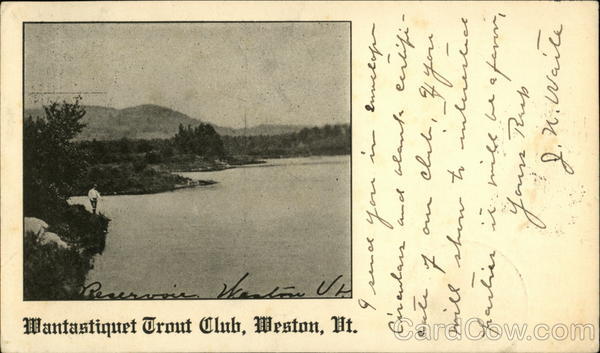 Reservoir, Weston Vt
Wantastiquet Trout Club, Weston, Vt.
I send you in envelope
Circulars and blank certifi-
cate of our club, If you
will show to interested
parties it will be a favor,
Yours Resp
J. N. Waite
CardCow.com